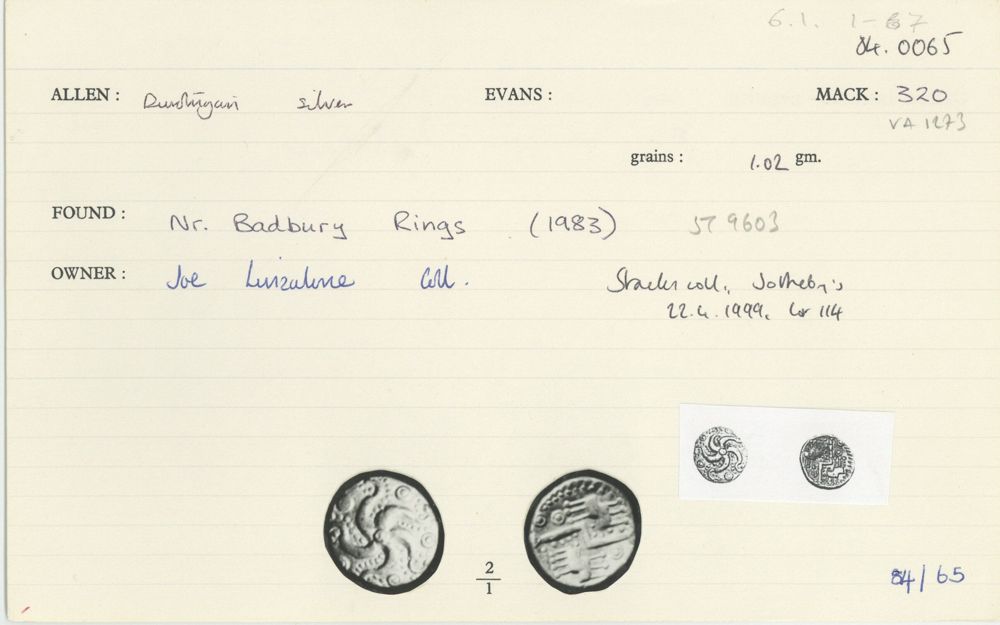 6.1. 1-67
84.0065
ALLEN : Durotrigan silver EVANS : MACK : 320
VA 1273
grains : 1.02 gm.
FOUND : Nr. Badbury Rings (1983) ST 9603
OWNER : Joe Coll. coll., Sotheby's
22.4.1999, lot 114
2
1
84/65